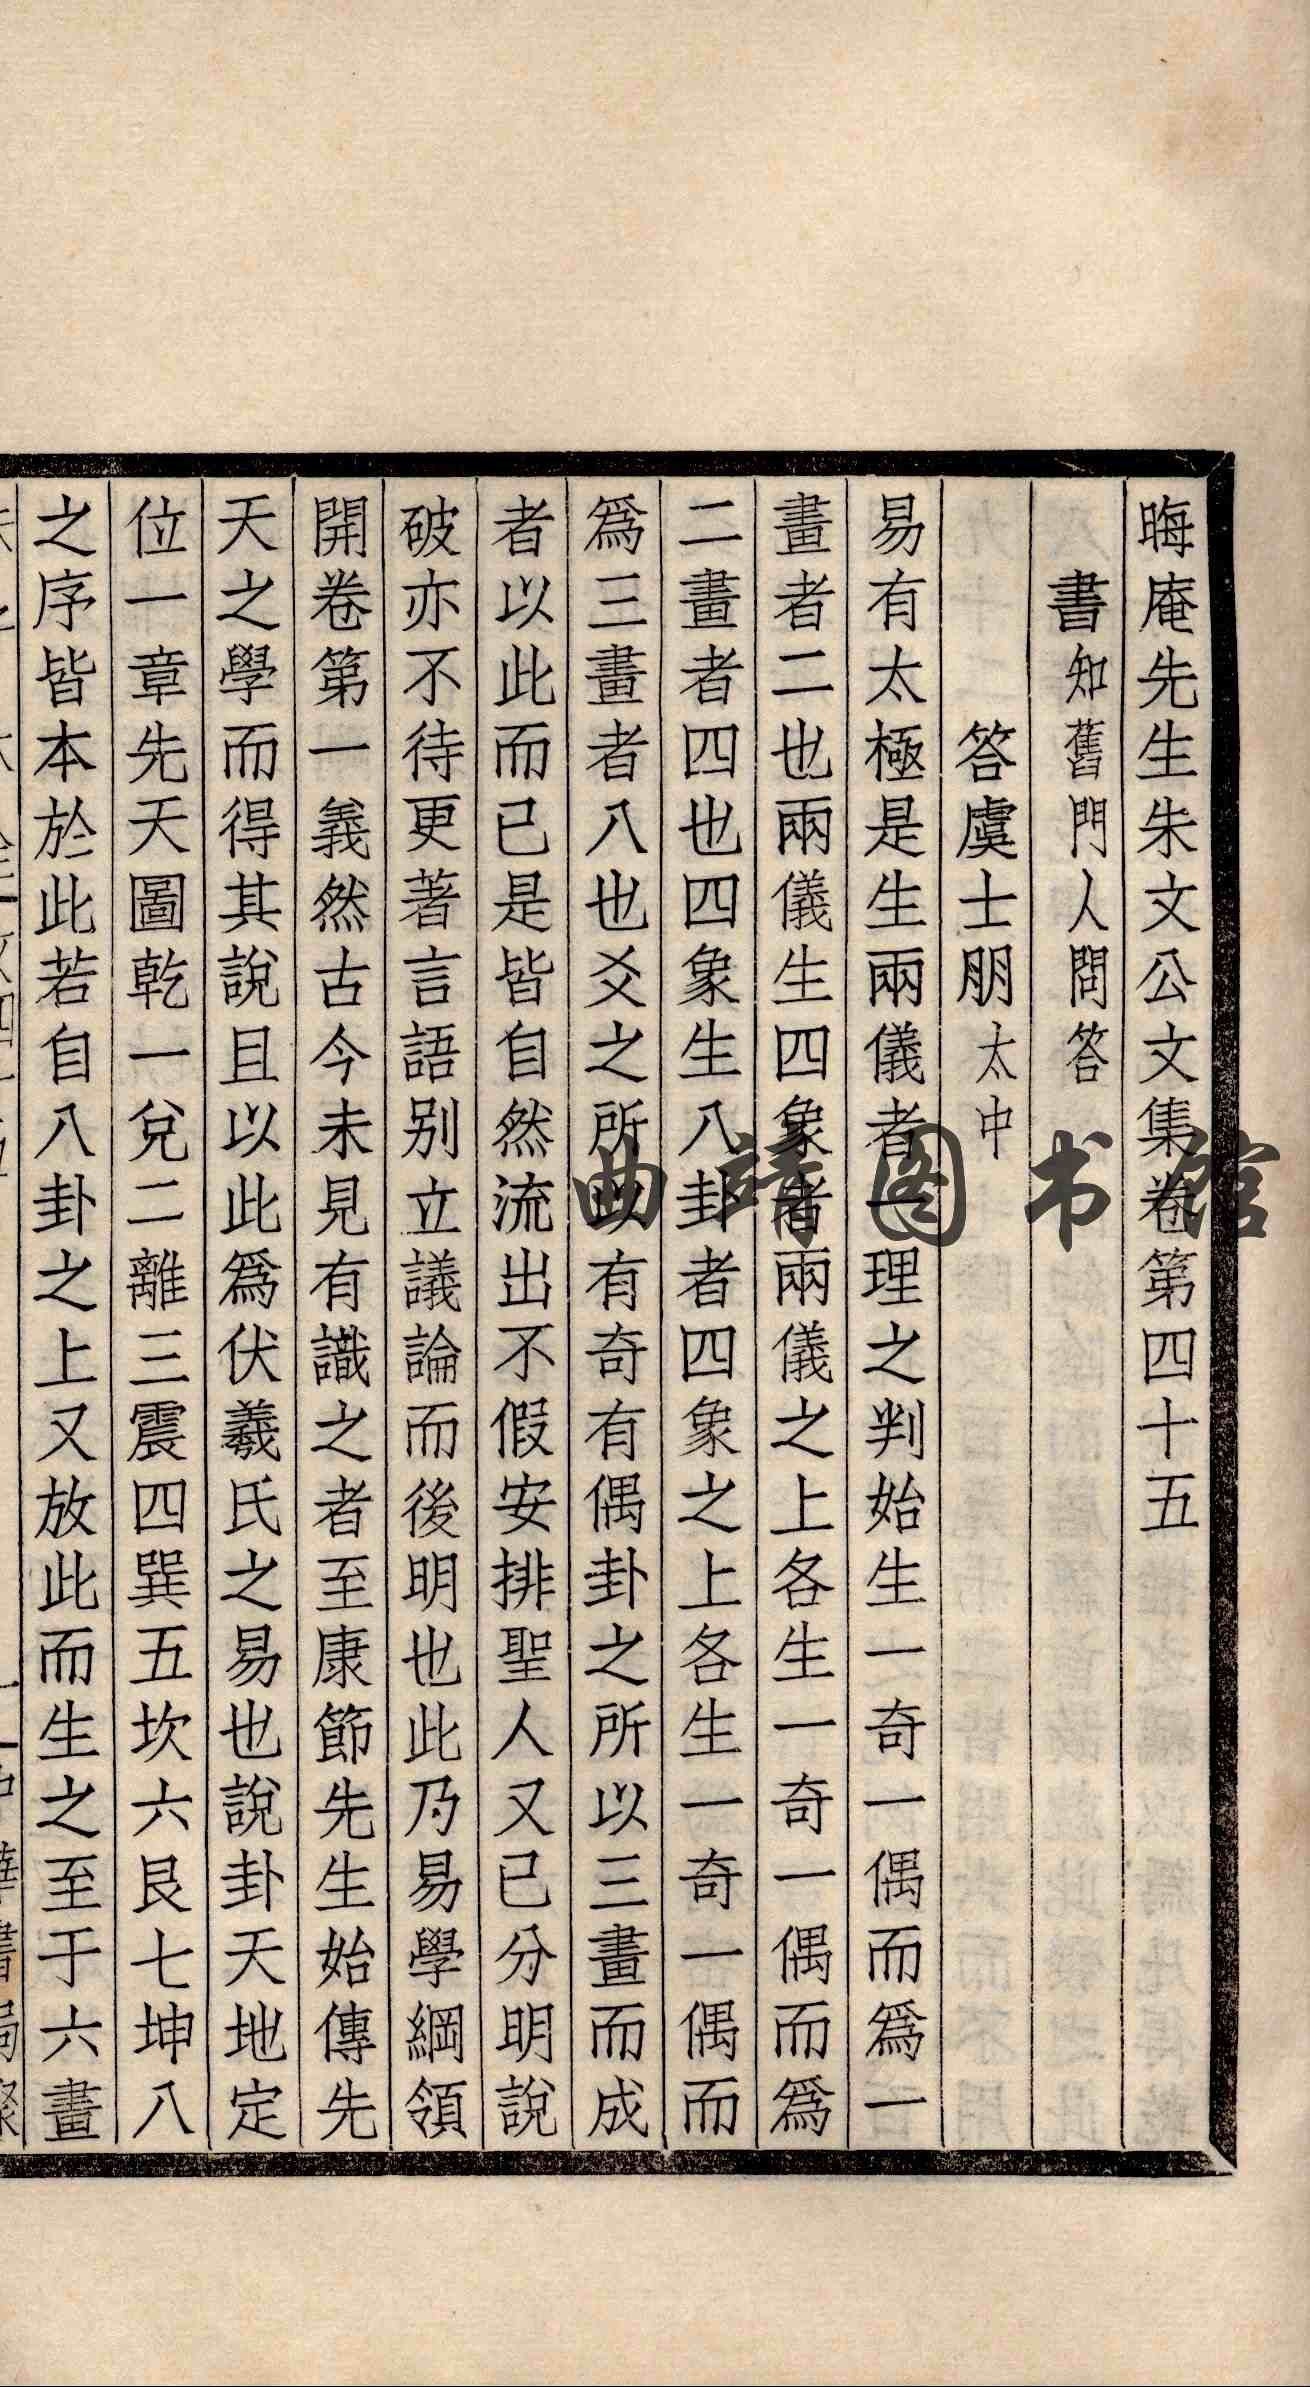 晦庵先生朱文公文集卷第四十五
書知舊門人問答
答虞士朋太中
易有太極是生兩儀者一理之判始生一奇一偶而爲一
畫者二也兩儀生四象者兩儀之上各生一奇一偶而爲
二畫者四也四象生八卦者四象之上各生一奇一偶而
爲三畫者八也爻之所以有奇有偶卦之所以三畫而成
者以此而已是皆自然流出不假安排聖人又已分明說
破亦不待更著言語別立議論而後明也此乃易學綱領
開卷第一義然古今未見有識之者至康節先生始傳先
天之學而得其說且以此爲伏羲氏之易也說卦天地定
位一章先天圖乾一兌二離三震四巽五坎六艮七坤八
之序皆本於此若自八卦之上又放此而生之至于六畫
曲靖图书馆